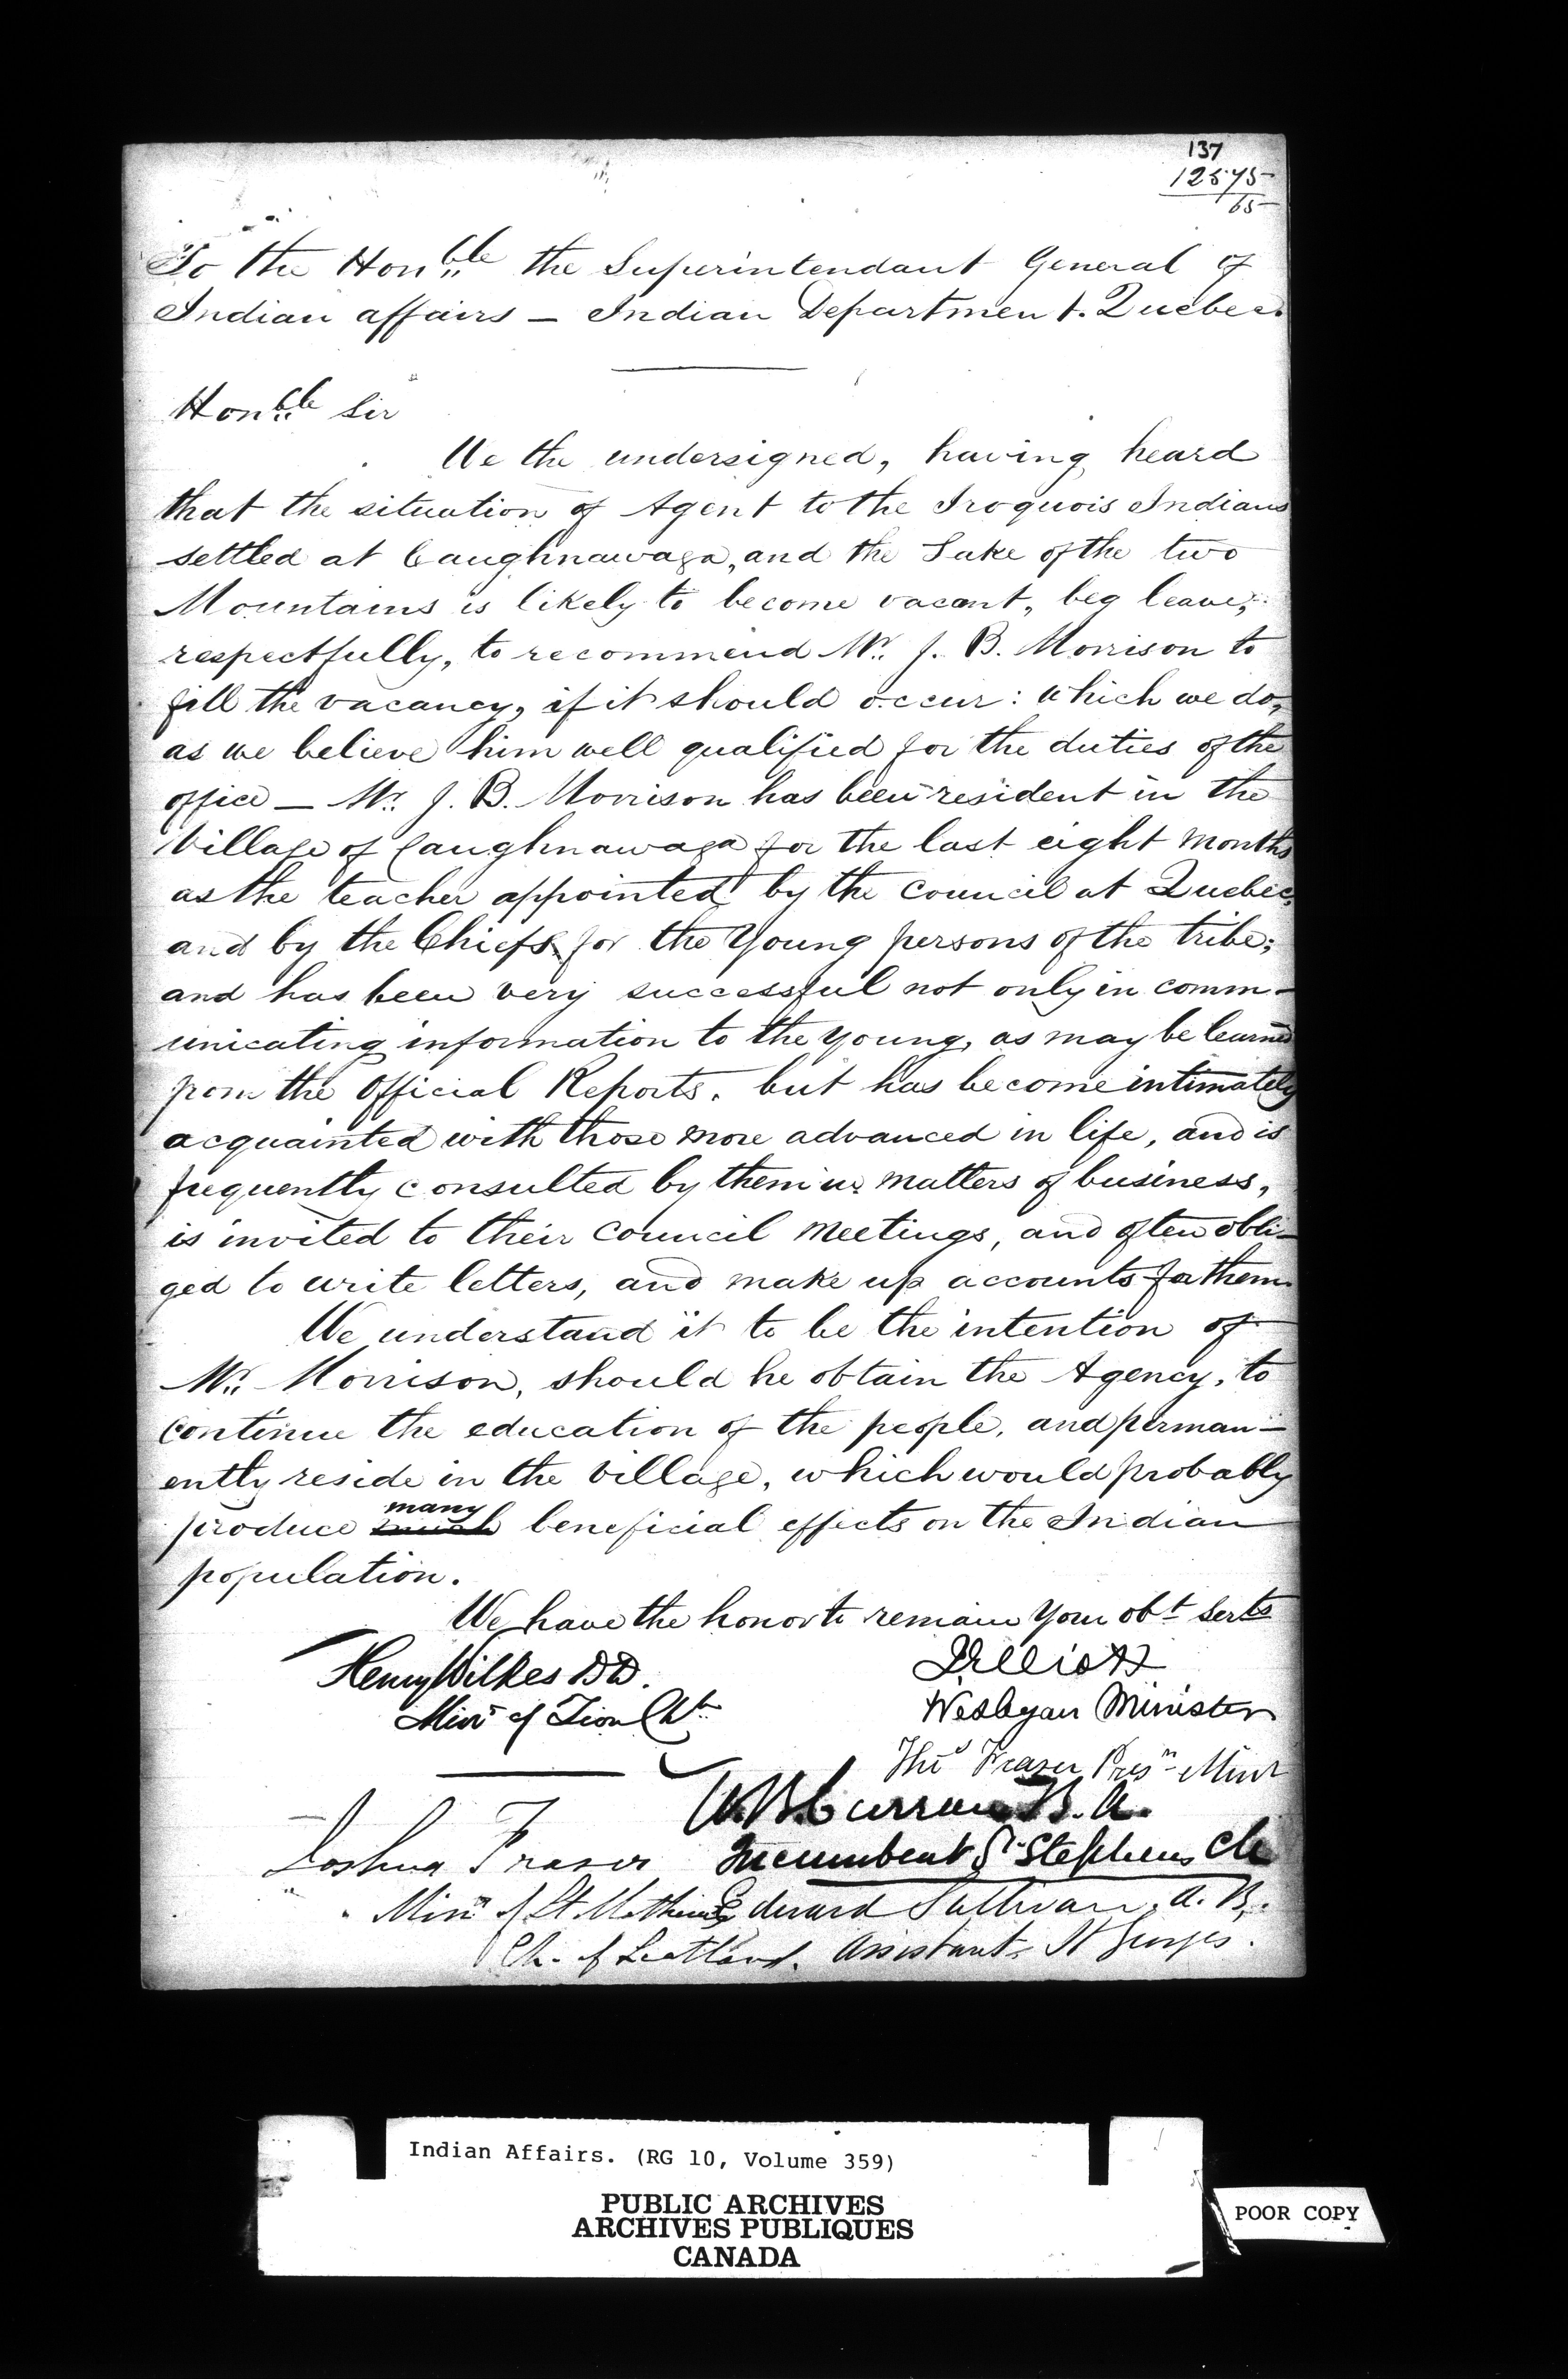 137
12575
65
To the Honble the Superintendant General of
Indian affairs — Indian Department. Quebec.
Honble Sir
We the undersigned, having heard
that the situation of Agent to the Iroquois Indians
settled at Caughnawaga, and the Lake of the two
Mountains is likely to become vacant, beg leave,
respectfully, to recommend Mr. J. B. Morrison to
fill the vacancy, if it should occur: which we do,
as we believe him well qualified for the duties of the
office — Mr. J. B. Morrison has been resident in the
Village of Caughnawaga for the last eight Months
as the teacher appointed by the Council at Quebec,
and by the Chiefs for the Young persons of the tribe;
and has been very successful not only in comm-
unicating information to the young, as may be learned
from the Official Reports. but has become intimately
acquainted with those more advanced in life, and is
frequently consulted by them in matters of business,
is invited to their Council Meetings, and often obli-
ged to write letters, and make up accounts for them.
We understand it to be the intention of
Mr. Morrison, should he obtain the Agency, to
continue the education of the people, and perman-
ently reside in the Village, which would probably
many
produce much beneficial effects on the Indian
population.
We have the honor to remain Your obt Serts
Henry Wilkes DD.
Minr of Zion Ch
J Elliott
Wesleyan Minister
Thos Frazer Presn Minr
W.B. Curran B.A.
Incumbent St Stephens Ch
Joshua Fraser
Minr of St Mathews
Ch. of Scotland.
Edward Sullivan, A. B.
Assistant, St Georges.
Indian Affairs. (RG 10, Volume 359)
PUBLIC ARCHIVES
ARCHIVES PUBLIQUES
CANADA
POOR COPY